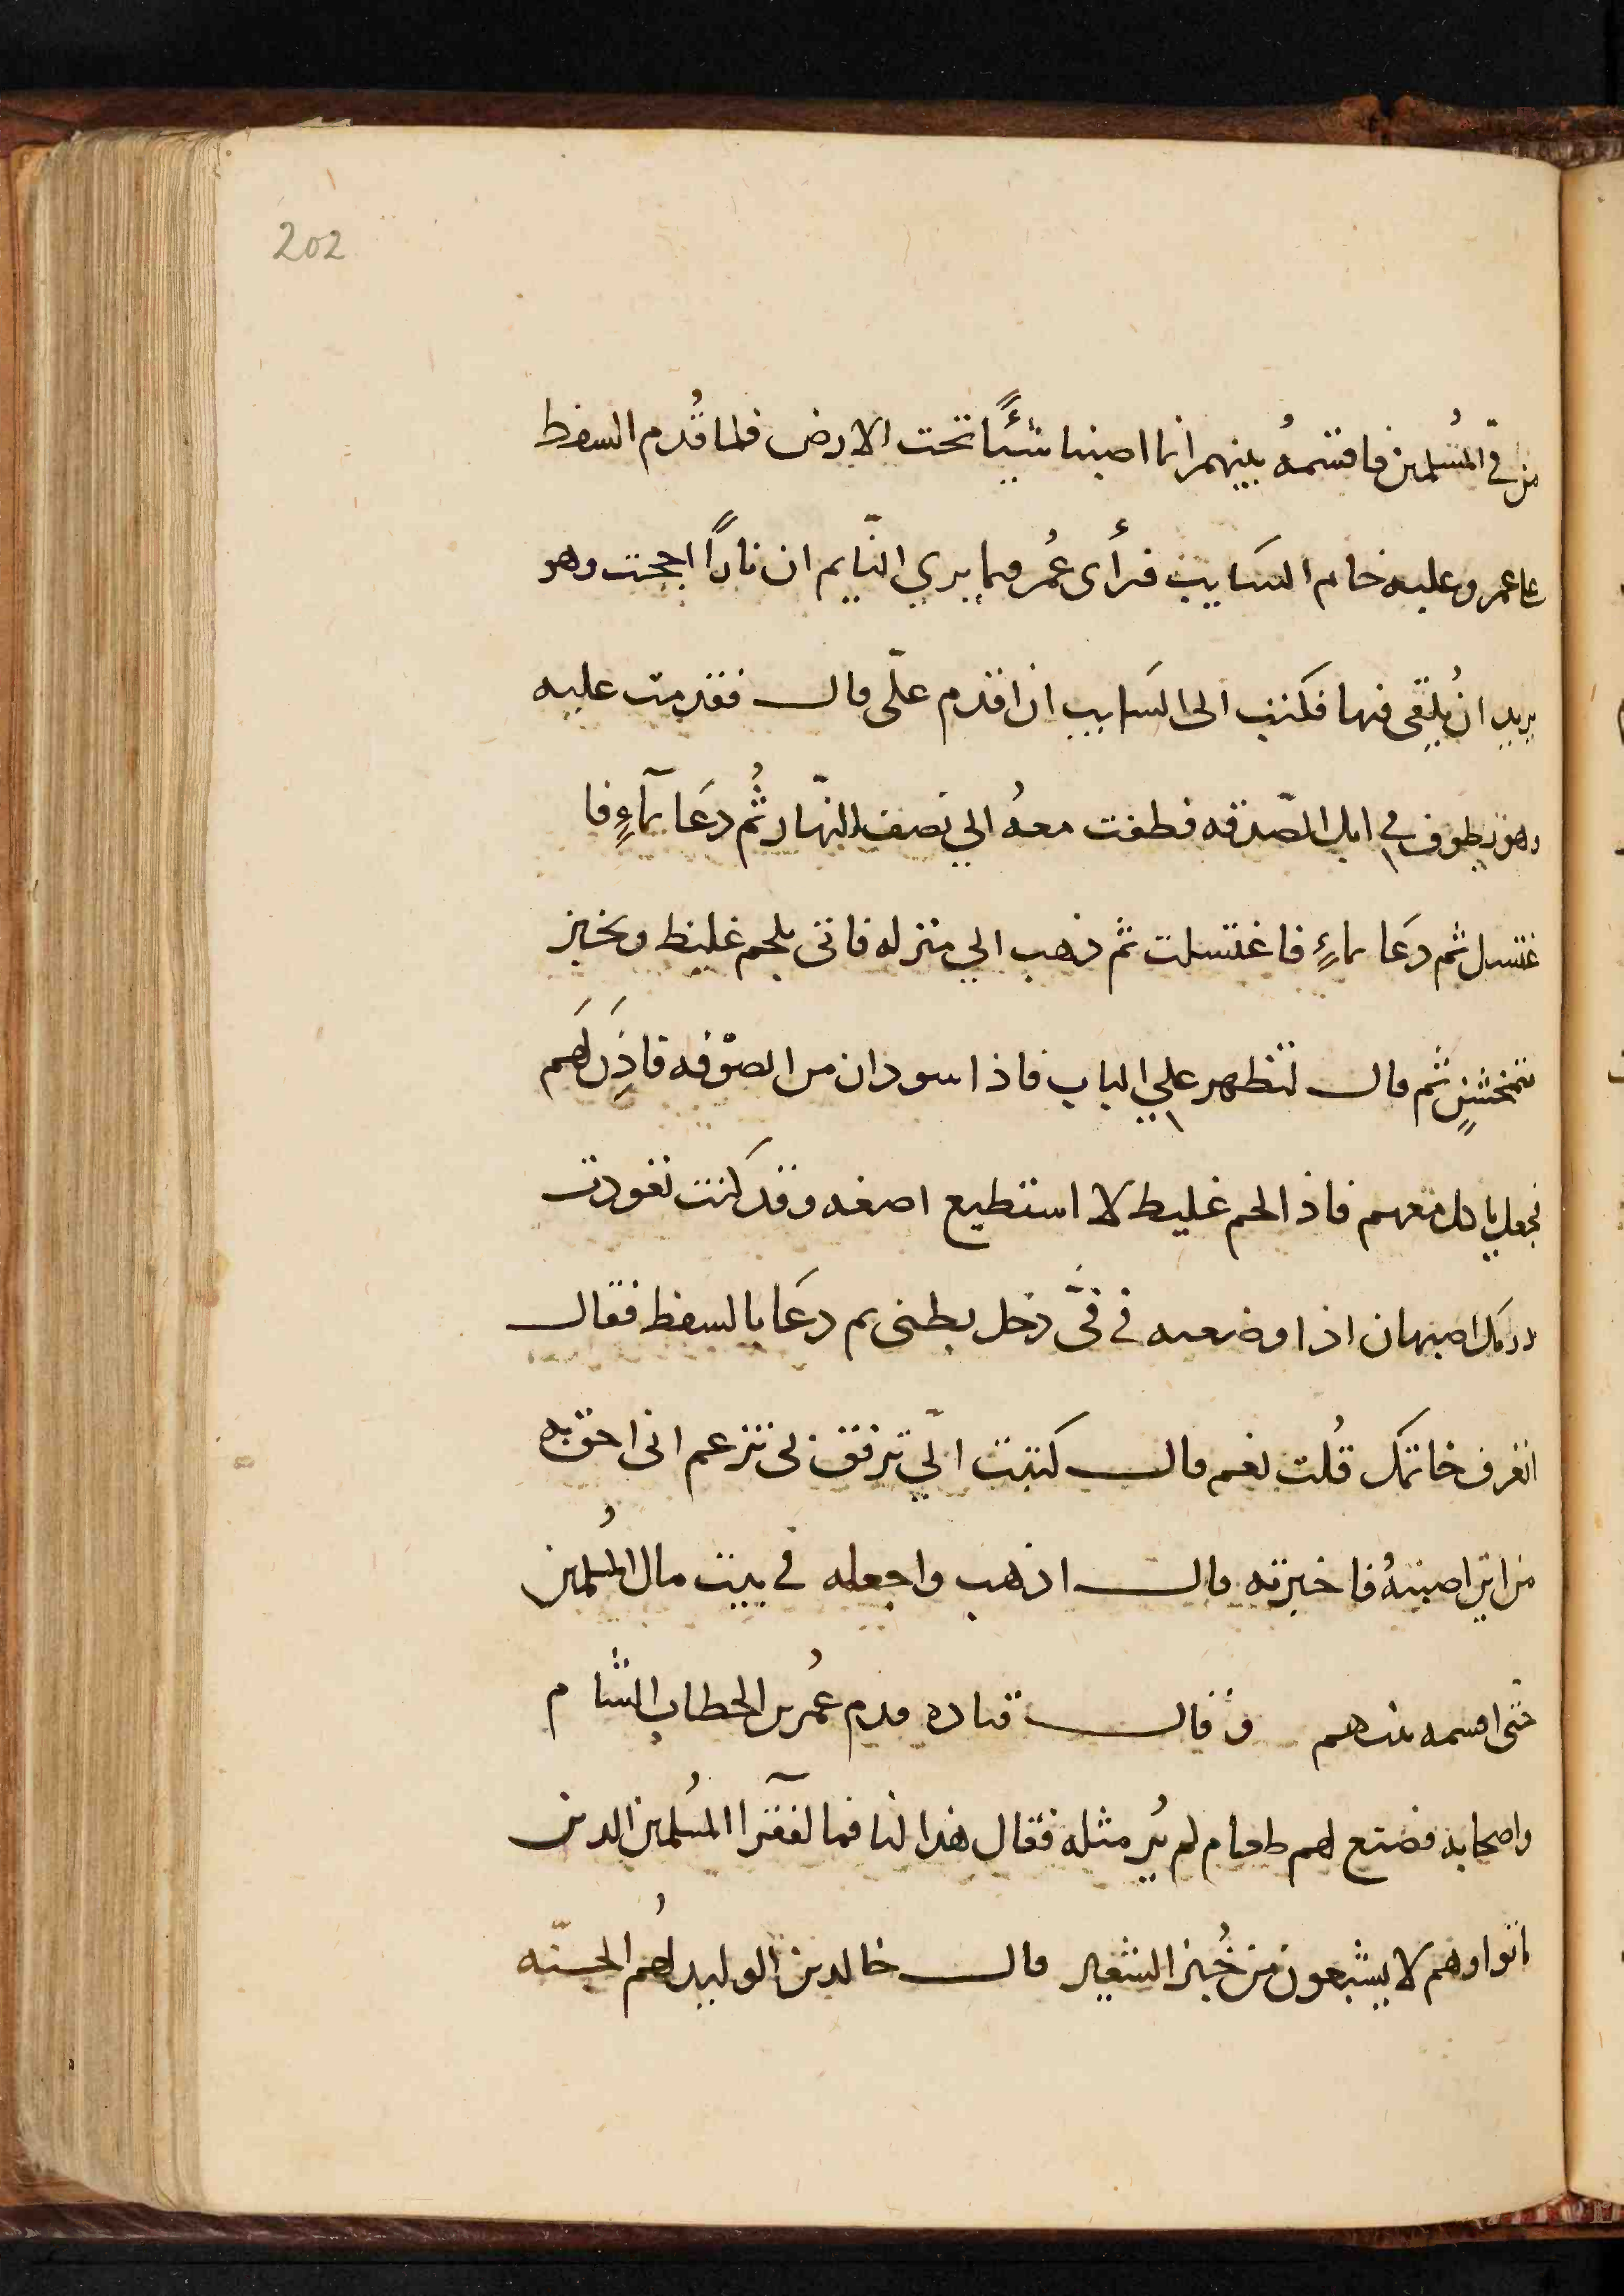 202
من فيّ المُسلمين فاقسمهُ بينهم انما اصبنا شيئًا تحت الارض فلما قُدم السفط
على عمر وعليه خاتم السَايب فرأى عُمر فيما يري النّايم ان نارًا اججت وهو
يريد ان يُلقى فيها فكتب الى السَايب ان اقدم علّى قال فقدمت عليه
وهو يطوف في ابل الصّدقه فطفت معهُ الي نصف النهّار ثُم دعَا بمآءٍ فا
غتسل ثم دعَا بماءٍ فاغتسلت ثم ذهب الي منزله فاتى بلحم غليظ وبخبز
متخشنٍ ثم قال تنظهر علي الباب فاذا سودان من الصوْفه فاذِن لَهم
فجعل ياكل معهم فاذا لحم غليط لا استطيع اصغه وقد كنت تعودت
درمك اصبهان اذا وضعته في فىّ دخل بطنى ثم دعَا بالسفط فقال
اتعرف خاتمك قُلت نعم قال كتبت الّي ترفق بى تزعم انى احق به
من اين اصبتهُ فاخبرته قال اذهب واجعله في بيت مال المُسلمين
حتى اقسمه بينهم وقال قتاده قدم عمُر بن الخطاب الشام
واصحابه فصنع لهم طعام لم يُر مثله فقال هذا لنا فما لفقرآ المُسلمين الدين
ماتوا وهم لا يشبعون من خُبز الشعير قال خالد بن الوليد لهُم الجنّه